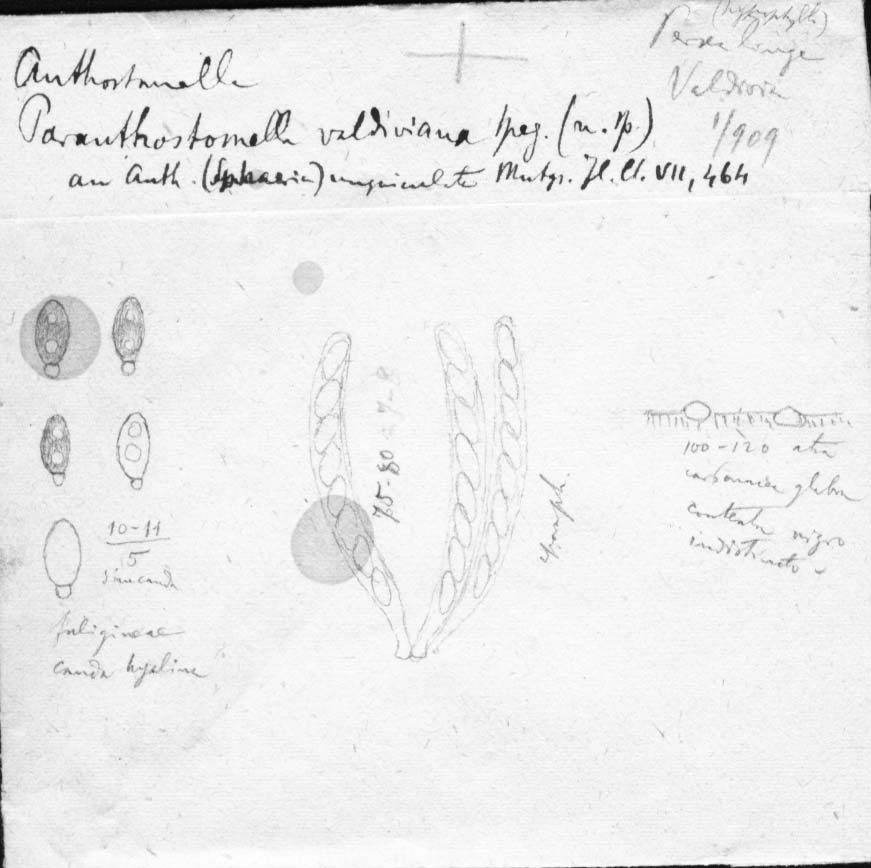 (hypophylla)
Persea linge
Valdivia
1/909
Anthostomella
Paranthostomella valdiviana Speg. (n. sp.)
an Anth. (Sphaeria) unguiculata Mntgn. Fl. Ch. VII, 464
10-11
5
sine cauda
fuligineae
cauda hyalina
75-80 = 7-8
paraph.
100-120 atra
carbonacea glabra
contextu nigro
indistincto